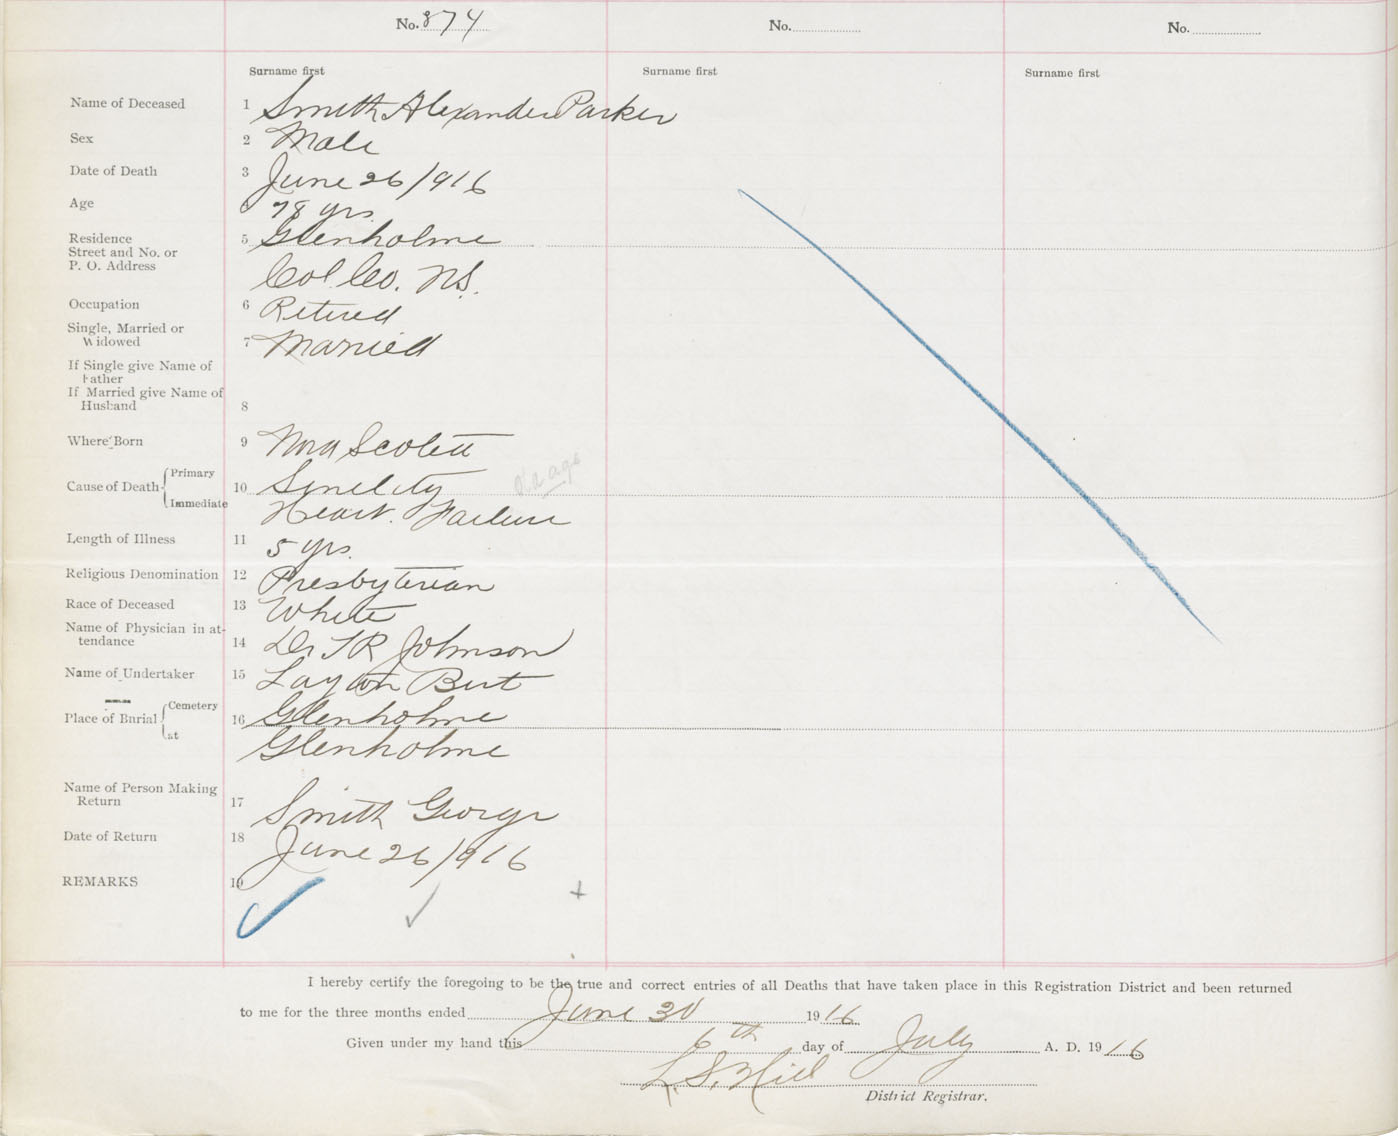 No. 874 No. No.
Surname first Surname first Surname first
Name of Deceased 1 Smith Alexander Parker
Sex 2 Male
Date of Death 3 June 26/916
Age 78 yrs.
Residence 5 Glenholme
Street and No. or
P. O. Address Col. Co. N.S.
Occupation 6 Retired
Single, Married or
Widowed 7 Married
If Single give Name of
Father
If Married give Name of
Husband 8
Where Born 9 Nova Scotia
Cause of Death Primary 10 Senility old age
Immediate Heart Failure
Length of Illness 11 5 yrs.
Religious Denomination 12 Presbyterian
Race of Deceased 13 White
Name of Physician in at-
tendance 14 Dr T R Johnson
Name of Undertaker 15 Layton Bert
Place of Burial Cemetery 16 Glenholme
at Glenholme
Name of Person Making
Return 17 Smith George
Date of Return 18 June 26/916
REMARKS 19
I hereby certify the foregoing to be the true and correct entries of all Deaths that have taken place in this Registration District and been returned
to me for the three months ended June 30 1916
Given under my hand this 6th day of July A. D. 1916
L. S. Hill
District Registrar.